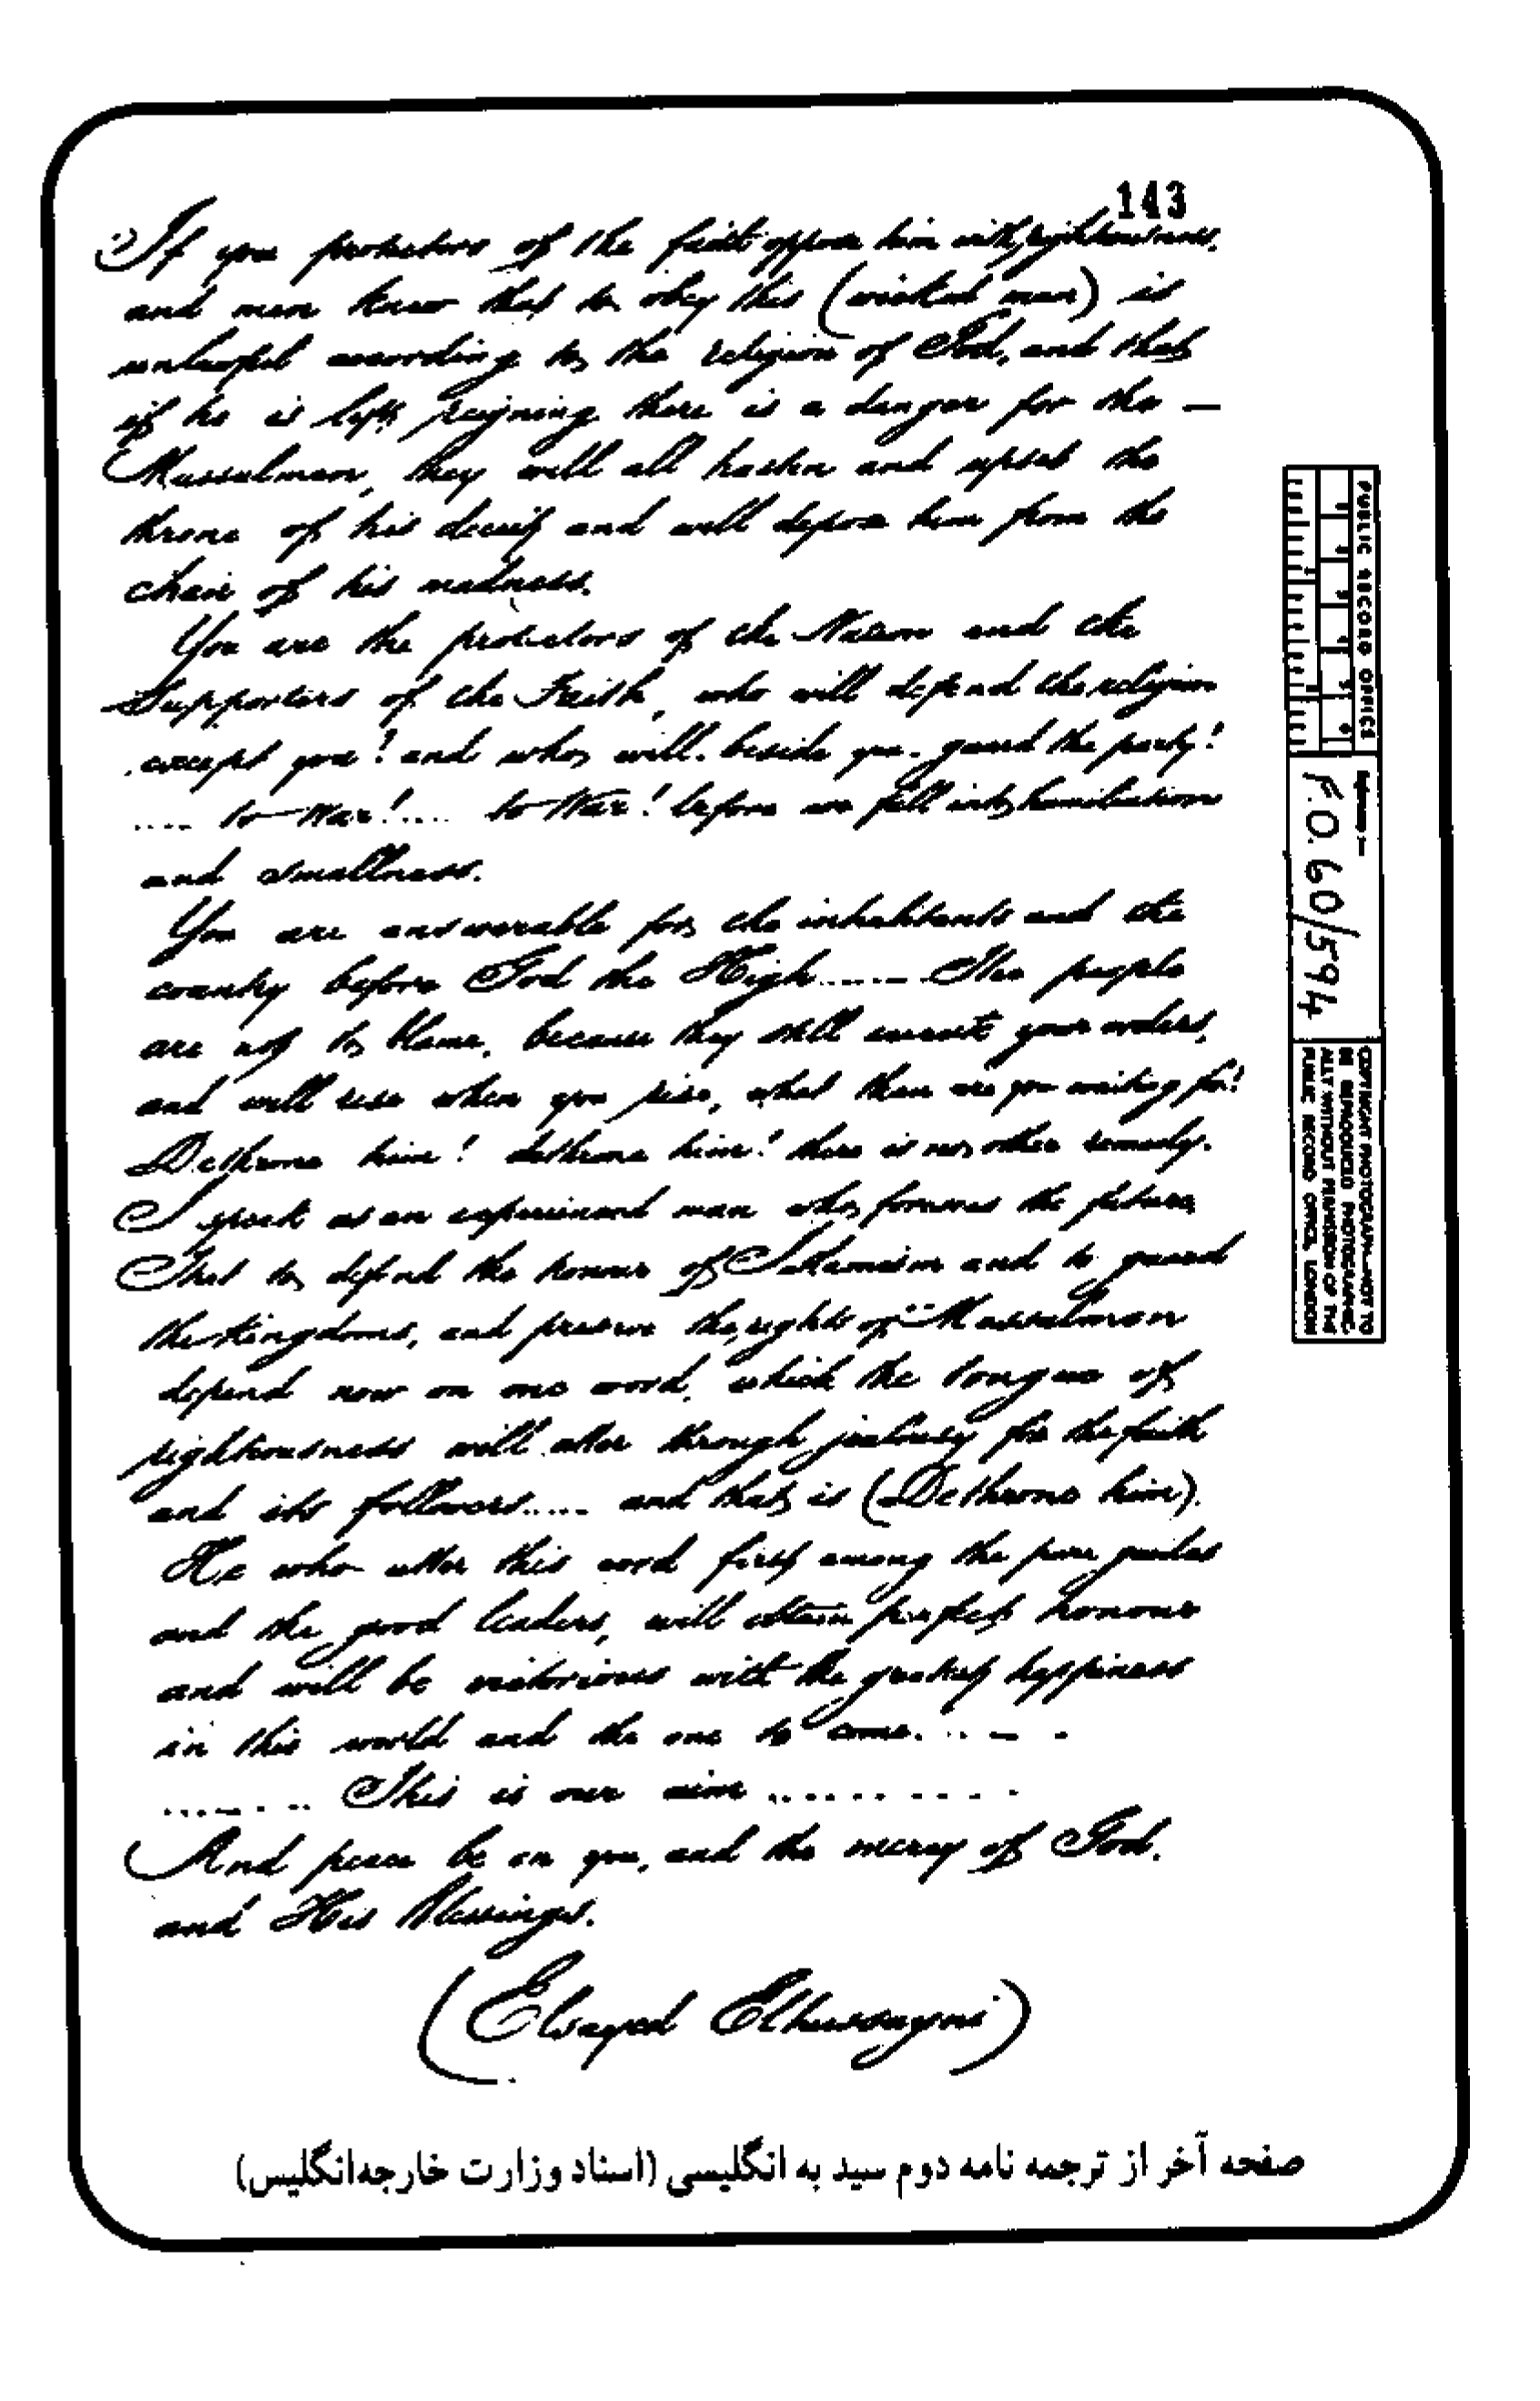 143
If you protectors of the faith oppose him with righteousness,
and men know that to obey this (wicked man) is
unlawful according to the religion of God, and that
if he is left reigning there is a danger for the —
Mussulman, they will all hasten and upset the
throne of his deceit and will depose him from the
chair of his madness.
You are the protectors of the Nation and the
Supporters of the Faith, who will defend the religion
except you! and who will beside you guard the party!
.... to War!.... to War! before we fall into humiliation
and smallness.
You are answerable for the inhabitants and the
country before God the High...... The people
are not to blame, because they still your orders,
and will rise when you rise, what then are you waiting for!
Dethrone him! dethrone him! there is no other remedy.
I speak as an experienced man who foresees the future
That to defend the honour of Islamism and to guard
the Kingdoms, and preserve the rights of Mussulman
depend now on one word, which the tongue of
righteousness will utter through jealousy for the faith
and its followers..... and that is (Dethrone him).
He who utter this word first among the pure guides
and the good leaders, will obtain perfect honour
and will be victorious with the greatest happiness
in this world and the one to come.....
........ This is our aim ..........
And peace be on you, and the mercy of God.
and His Blessings.
(Elsayed Elhussayni)
PUBLIC RECORD OFFICE
Reference:—
F.O. 60/594
COPYRIGHT PHOTOGRAPH—NOT TO
BE REPRODUCED PHOTOGRAPHIC-
ALLY WITHOUT PERMISSION OF THE
PUBLIC RECORD OFFICE, LONDON
صفحه آخر از ترجمه نامه دوم سید به انگلیسی (اسناد وزارت خارجه انگلیس)